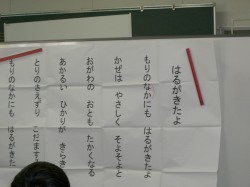 はるがきたよ
もりのなかにも はるがきたよ
かぜは やさしく そよそよと
おがわの おとも たかくなる
あかるい ひかりが きらき
とりのさえずり こだます
もりのなかにも はるがきた